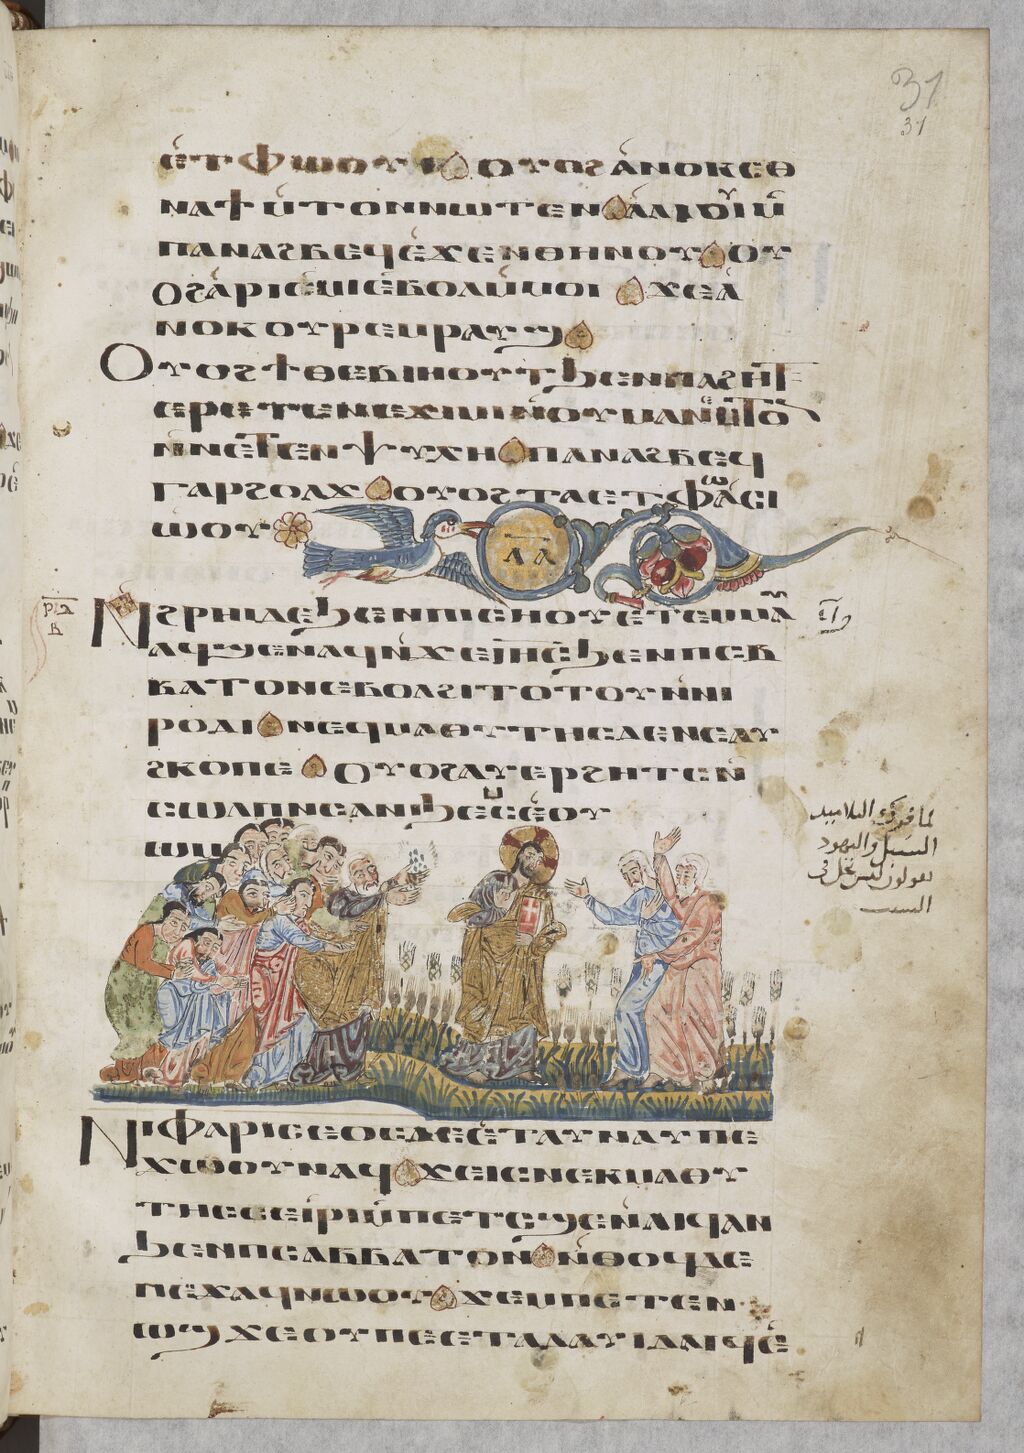 31
31
ⲉ̀ⲧⲫⲱⲟⲩⲓ ⲟⲩⲟϩⲁ̀ⲛⲟⲕⲉⲑ
ⲛⲁϯⲙ̀ⲧⲟⲛⲛⲱⲧⲉⲛ ⲁⲗⲓⲟⲩⲓ̀ⲙ̀
ⲡⲁⲛⲁϩⲃⲉϥⲉ̀ϫⲉⲛⲑⲏⲛⲟⲩ ⲟⲩ
ⲟϩⲁ̀ⲣⲓⲉ̀ⲙⲓⲉ̀ⲃⲟⲗⲙ̀ⲙⲟⲓ ϫⲉⲁ̀
ⲛⲟⲕⲟⲩⲣⲉⲙⲣⲁⲩϣ
ⲟⲩⲟϩϯⲑⲉⲃⲓⲏⲟⲩⲧϧⲉⲛⲡⲁϩⲏⲧ
ⲉⲣⲉⲧⲉⲛⲉϫⲓⲙⲓⲛ̀ⲟⲩⲙⲁⲛ̀ⲙ̀ⲧⲟⲛ
ⲛ̀ⲛⲉⲧⲉⲛⲯⲩⲭⲏ ⲡⲁⲛⲁϩⲃⲉϥ
ⲅⲁⲣϩⲟⲗϫ ⲟⲩⲟϩⲧⲁⲉⲧⲫⲱⲁ̀ⲥⲓ
ⲱⲟⲩ
ⲗⲁ
ⲛ̀ϩⲣⲏⲓⲇⲉϧⲉⲛⲡⲓⲥⲏⲟⲩⲉⲧⲉⲙⲙⲁⲩ
ⲁϥϣⲉⲛⲁϥⲛ̀ϫⲉⲓⲏⲥϧⲉⲛⲡⲥⲃ
ⲃⲁⲧⲟⲛⲉⲃⲟⲗϩⲓⲧⲟⲧⲟⲩⲛ̀ⲛⲓ
ⲣⲟϯ ⲛⲉϥⲙⲁⲑⲩⲧⲏⲥⲇⲉⲛⲉⲁⲩ
ϩⲕⲟⲡⲉ ⲟⲩⲟϩⲁⲩⲉⲣϩⲏⲧⲥⲛ̀
ⲥⲱⲗⲡⲛϩⲁⲛϧⲉⲙⲥⲉ̀ⲟⲩ
ⲱⲙ
لما فرك التلاميد
السنبل واليهود
يقولون ليس يحل في
السبت
ⲛⲓⲫⲁⲣⲓⲥⲉⲟⲥⲇⲉⲉ̀ⲧⲁⲩⲛⲁⲩⲡⲉ
ϫⲱⲟⲩⲛⲁϥ ϫⲉⲓⲥⲛⲉⲕⲙⲁⲑⲩ
ⲧⲏⲥⲥⲉⲓ̀ⲣⲓⲙ̀ⲡⲉⲧⲥϣⲉⲛ̀ⲁⲓϥⲁⲛ
ϧⲉⲛⲡⲥⲁⲃⲃⲁⲧⲟⲛ ⲛ̀ⲑⲟϥⲇⲉ
ⲡⲉϫⲁϥⲛⲱⲟⲩ ϫⲉⲙⲡⲉⲧⲉⲛ
ⲱϣϫⲉⲟⲩⲡⲉⲉⲧⲁⲇⲁⲩⲓⲇⲁⲓϥⲉ̀